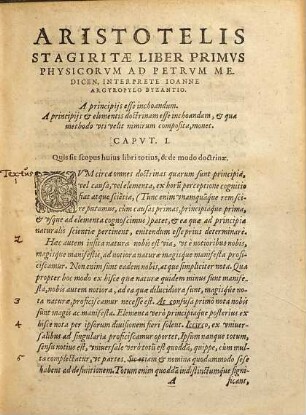 ARISTOTELIS
STAGIRITÆ LIBER PRIMVS
PHYSICORVM AD PETRVM ME
DICEN, INTERPRETE IOANNE
ARGYROPYLO BYZANTIO.
A principijs esse inchoandum.
A principijs & elementis doctrinam esse inchoandam, & qua
methodo vti velit nimirum composita, monet.
CAPVT. I.
Quis sit scopus huius libri totius, & de modo doctrinæ.
Textus
CVM circa omnes doctrinas quarum sunt principia,
vel causa, vel elementa, ex horū perceptione cognitio
fiat atque scientia, (Tunc enim vnamquāque rem sci-
re putamus, cùm causas primas, principiaque prima,
& vsque ad elementa cognoscimus) patet, & ea, quæ ad principia
naturalis scientiæ pertinent, enitendum esse prius determinare.
Hæc autem insita natura nobis est via, vt è notioribus nobis,
magisque manifestis, ad notiora natura magisque manifesta profi-
ciscamur. Non enim sunt eadem nobis, atque simpliciter nota. Qua
propter hoc modo ex hisce quæ naturæ quidem minus sunt manife-
sta, nobis autem notiora, ad ea quæ dilucidiora sunt, magisque no-
3 ta naturæ, proficiscamur necesse est. At confusa primò nota nobis
sunt magis ac manifesta. Elementa verò principiaque posterius ex
4 hisce nota per ipsorum diuisionem fieri solent. Iccirco, ex vniuer-
salibus ad singularia proficisci oportet. Ipsum nanque totum,
sensu notius est, vniuersale verò totū est quoddā, quippe, cùm mul
5 ta complectatur, vt partes. Sic etiam & nomina quodammodo sese
habent ad definitionem. Totum enim quoddā indistinctumque signi-
A ficant,